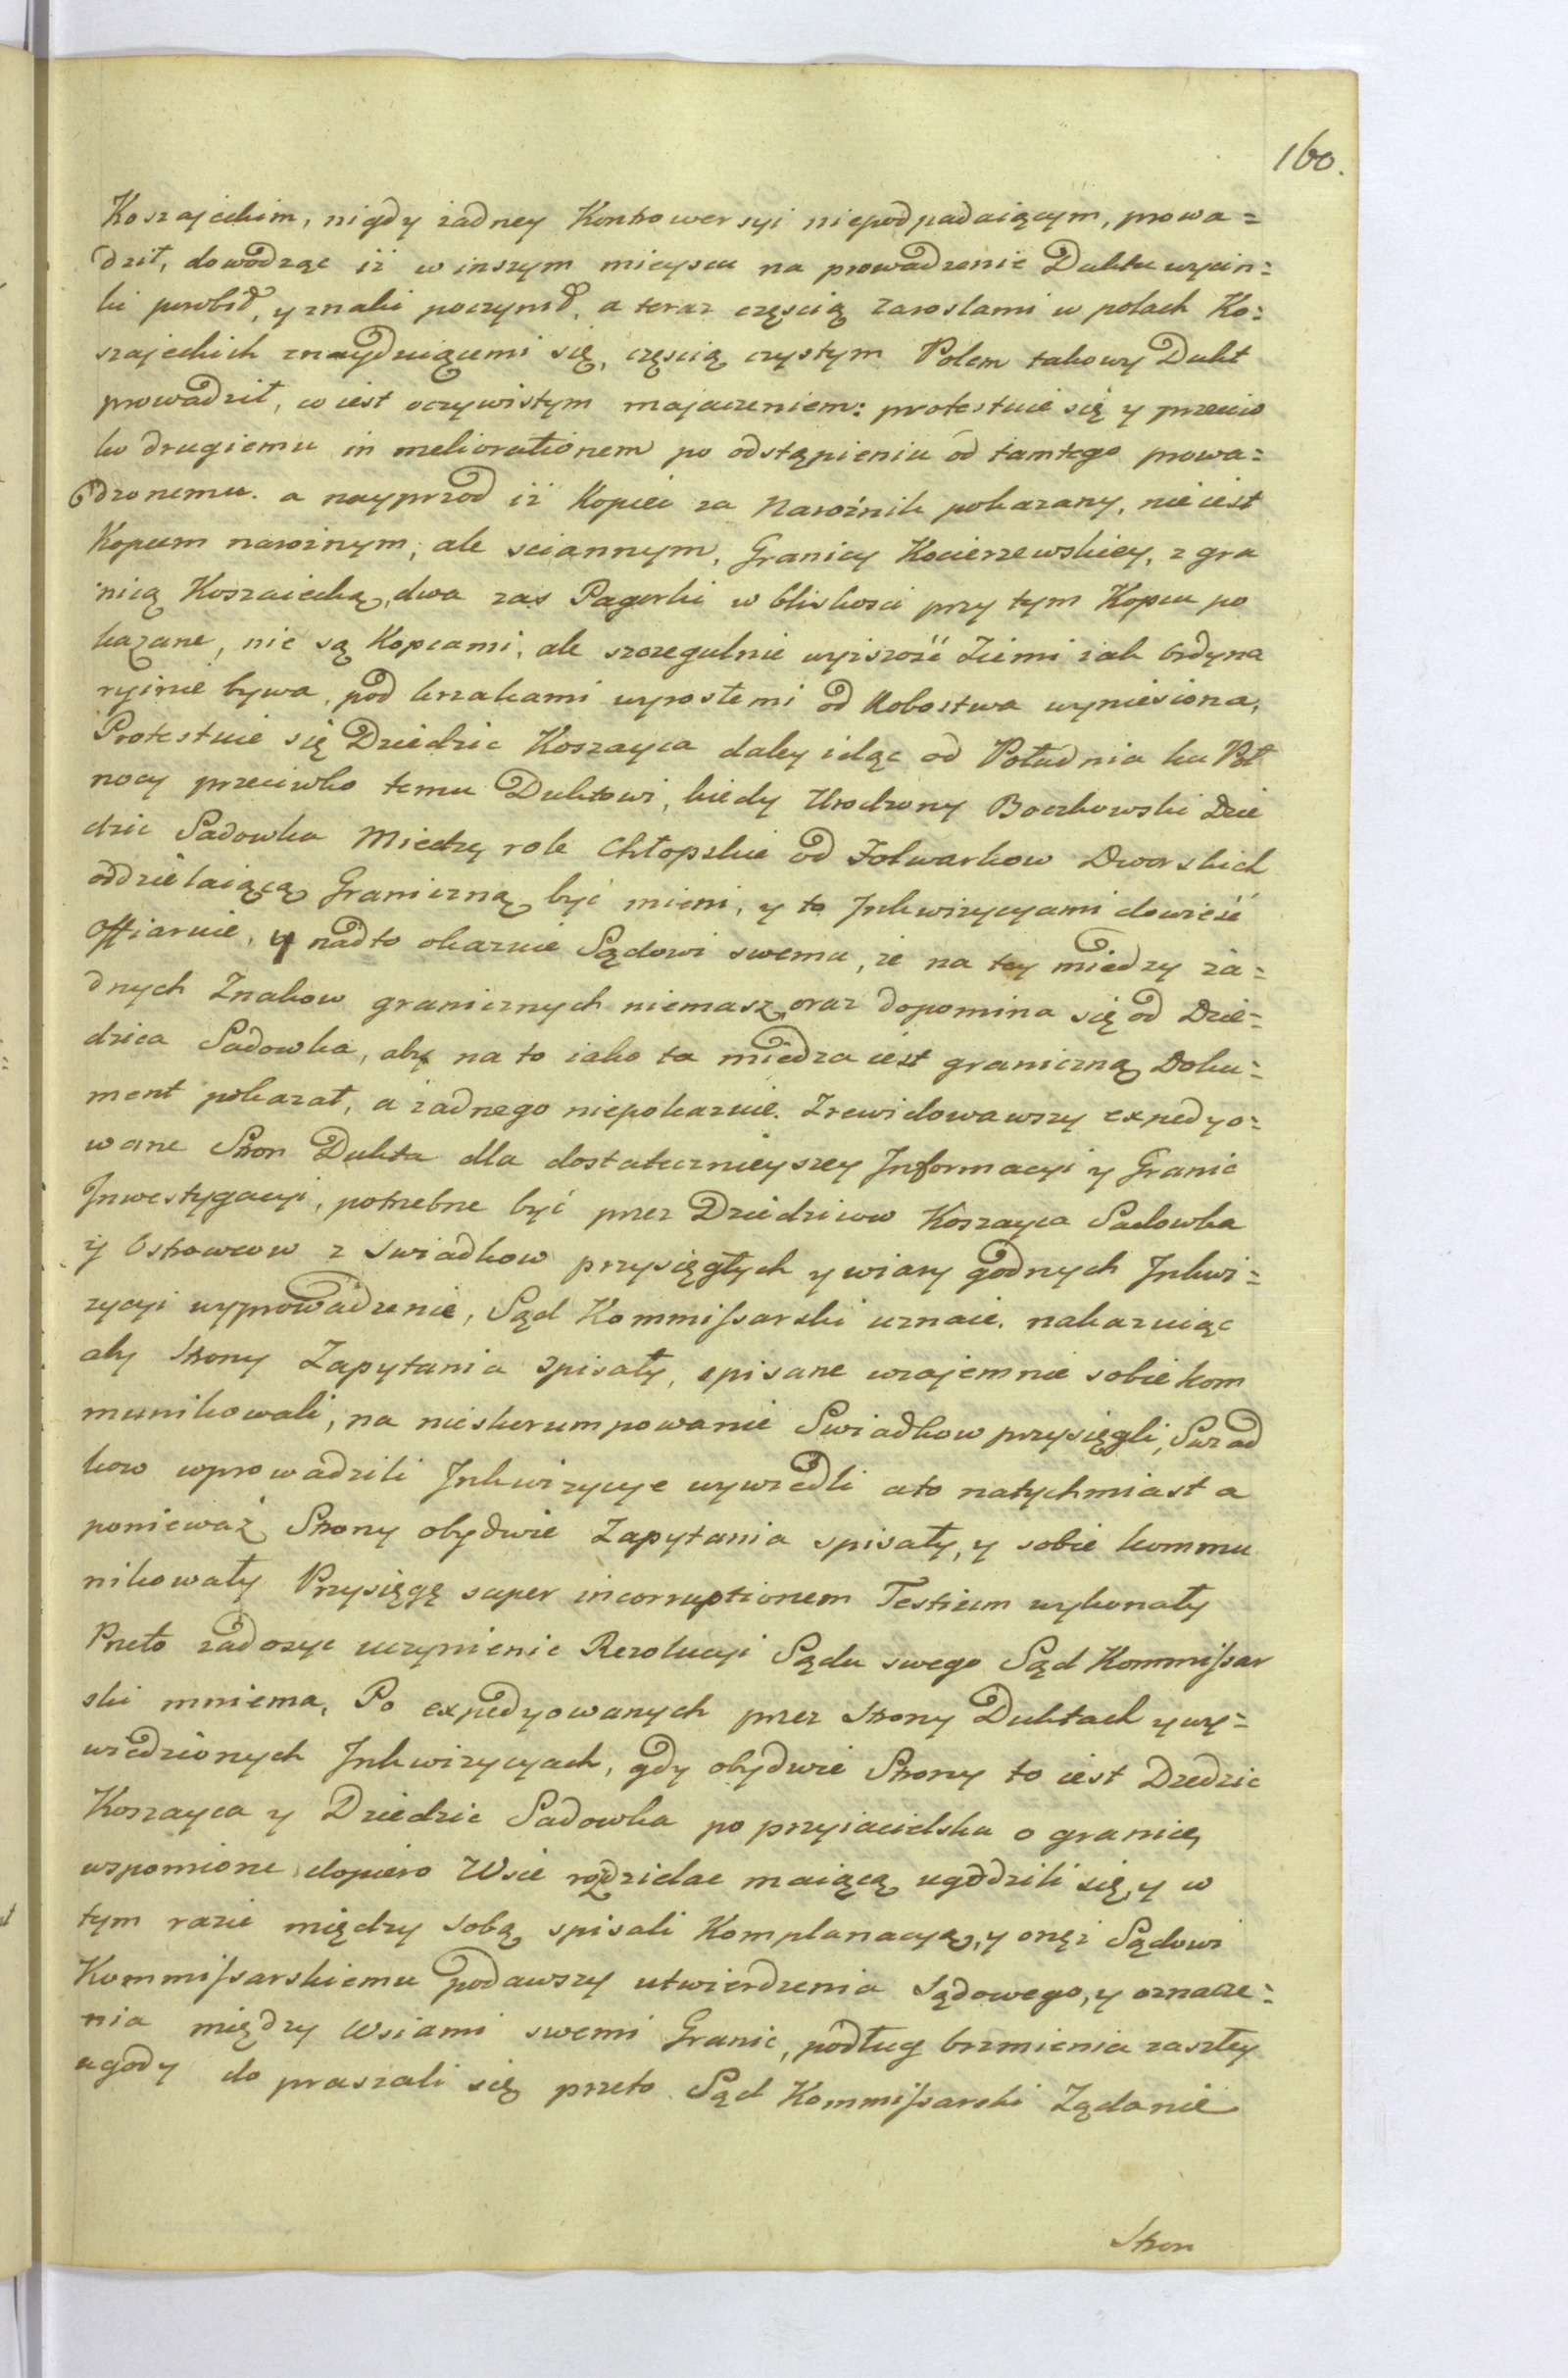 160.
Koszajeckim, nigdy żadney Kontrowersyi niepodpadaiącym, prowa=
dził, dowodząc iż w inszym mieyscu na prowadzenie Duktu wycin=
ki porobił, y znaki poczynił, a teraz częscią zaroslami w polach Ko=
szajeckich znayduiącemi się, częscią czystym Polem takowy Dukt
prowadził, co iest oczywistym majaczeniem: protestuie się y przeciw
ko drugiemu in meliorationem po odstąpieniu od tamtego prowa=
dzonemu. a nayprzod iż Kopiec za Narożnik pokazany, nie iest
Kopcem narożnym, ale sciannym, Granicy Kocierzewskiey, z gra
nicą Koszaiecką, dwa zas Pagorki w bliskosci przy tym Kopcu po
kazane, nie są Kopcami, ale szczegulnie wyższość Ziemi iak ordyna
ryinie bywa, pod krzakami wyrosłemi od Robostwa wyniesiona,
Protestuie się Dziedzic Koszayca daley idąc od Południa ku Puł
nocy przeciwko temu Duktowi, kiedy Urodzony Boczkowski Dzie
dzic Sadowka Miedzę role Chłopskie od Folwarkow Dworskich
oddzielaiącą Graniczną być mieni, y to Inkwizycyami dowieść
offiaruie, y nadto okazuie Sądowi swemu, że na tey miedzy ża=
dnych Znakow granicznych niemasz, oraz dopomina się od Dzie=
dzica Sadowka, aby na to iako ta miedza iest graniczną Doku=
ment pokazał, a żadnego niepokazuie. Zrewidowawszy expedyo=
wane Stron Dukta dla dostatecznieyszey Informacyi y Granic
Inwestygacyi, potrzebne być przez Dziedzicow Koszayca Sadowka
y Ostrowcow z Swiadkow przysięgłych y wiary godnych Inkwi=
zycyi wyprowadzenie, Sąd Kommissarski uznaie. nakazuiąc
aby Strony Zapytania spisały, spisane wzajemnie sobie kom
munikowali, na nieskorumpowanie Swiadkow przysięgli, Swiad
kow wprowadzili Inkwizycye wywiedli a to natychmiast a
ponieważ Strony obydwie Zapytania spisały, y sobie kommu
nikowały Przysięgę super incorruptionem Testium wykonały
Przeto zadosyc uczynienie Rezolucyi Sądu swego Sąd Kommissar
ski mniema, Po expedyowanych przez Strony Duktach y wy=
wiedzionych Inkwizycyach, gdy obydwie Strony to iest Dziedzic
Koszayca y Dziedzic Sadowka po przyiacielsku o granicę
wspomione dopiero Wsie rozdzielac maiącą ugodzili się, y w
tym razie między Sobą spisali Komplanacyą, y onęż Sądowi
Kommissarskiemu podawszy utwierdzenia Sądowego, y oznacze=
nia między Wsiami swemi Granic, podług brzmienia zaszłey
ugody do praszali się przeto Sąd Kommissarski Ządanie
Stron